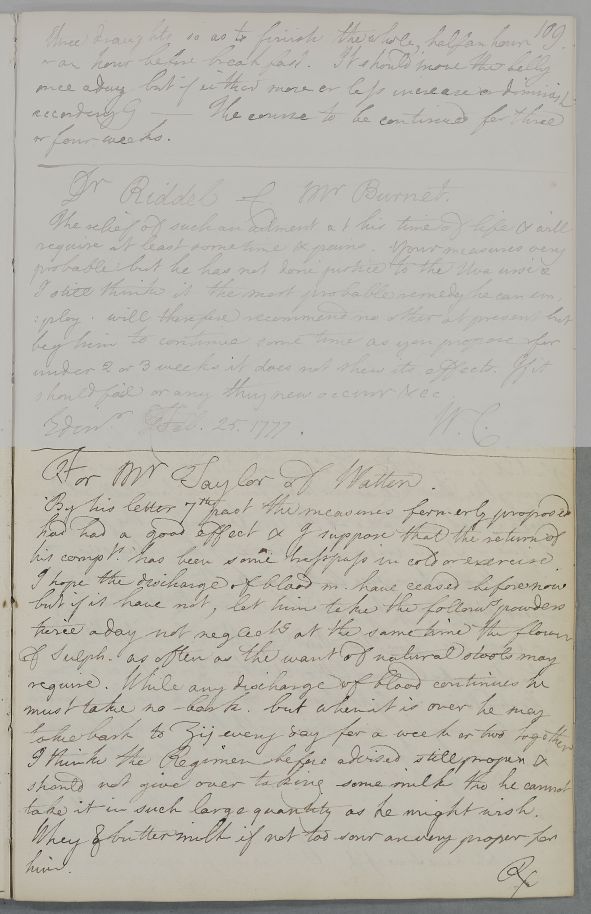 109.
three draughts so as to finish the whole, half an hour
or an hour before breakfast. It should move the belly
once a day but if either more or less increase or diminish
accordingly — The course to be continued for three
or four weeks.
Dr Riddel of Mr Burnet.
The relief of such an ailment at his time of life & will
require at least some time & pains. Your measures very
probable but he has not done justice to the Uva ursi &
I still think it the most probable remedy he can em,
:ploy. will therefore recommend no other at present but
beg him to continue some time as you propose for
under 2 or 3 weeks it does not shew its effects. If it
should fail or any thing new occurr &c
Edinr. Feb. 25. 1777. W. C.
For Mr Taylor of Watten.
By his letter 7th past the measures formerly proposed
had had a good effect & I suppose that the return of
his compt. has been some trespass in cold or exercise.
I hope the discharge of blood m. have ceased before now
but if it have not, let him take the followg powders
twice a day not neglectg at the same time the flower
of Sulph. as often as the want of natural stools may
require. While any discharge of blood continues he
must take no bark. but when it is over he may
take bark to ʒij every day for a week or two together
I think the Regimen before advised still proper &
should not give over taking some milk tho he cannot
take it in such large quantity as he might wish.
Whey & butter milk if not too sour are very proper for
him.